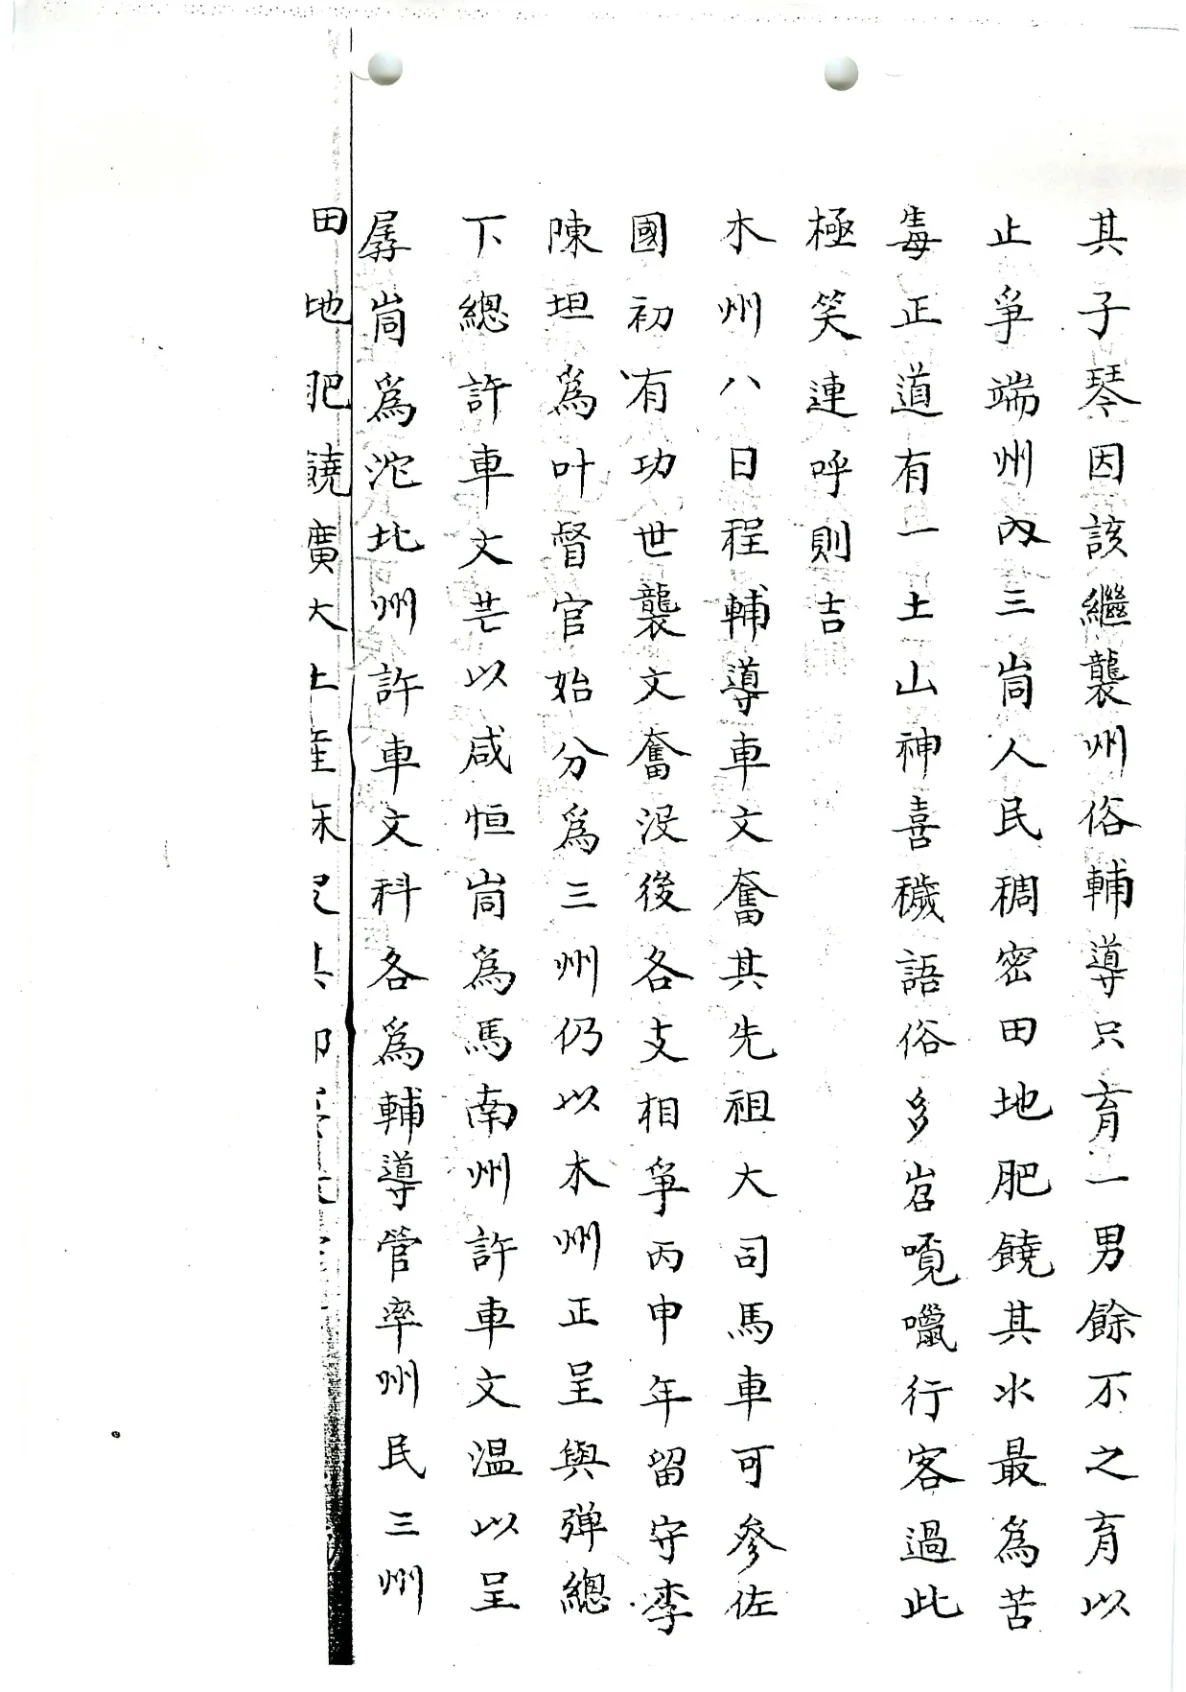 其子琴因該繼襲州俗輔導只育一男餘不之育以
止爭端州內三峝人民稠密田地肥饒其水最為苦
毒正道有一土山神喜穢語俗多岧嚈囒行客過此
極笑連呼則吉
木州八日程輔導車文奮其先祖大司馬車可參佐
國初有功世襲文奮没後各支相爭丙申年留守李
陳坦為叶督官始分為三州仍以木州正呈與弹總
下總許車文芒以咸恒峝為馬南州許車文温以呈
孱峝為沱北州許車文科各為輔導管率州民三州
田地肥饒廣大土產